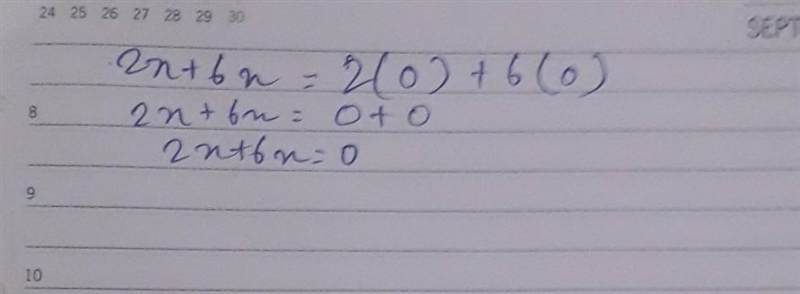 24 25 26 27 28 29 30
SEPT
2x+6x = 2(0) + 6(0)
8
2x+6x = 0+0
2x+6x=0
9
10